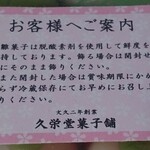 お客様へご案内
雛菓子は脱酸素剤を使用して鮮度を
持しております。飾る場合は開封せ
にそのまま飾りください。
また開封した場合は賞味期限にか
らず冷蔵保存にてお早めにお召し上
りください。
文久二年創業
久栄堂菓子舗